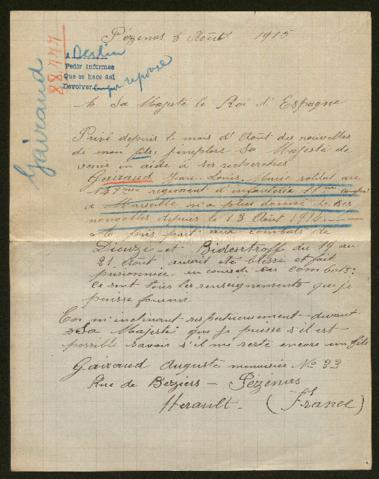 Pézenas 3 Août 1915
Gairaud
88.777
a Berlin
Pedir informes
Que se hace del
Devolver
réponse
A Sa Majesté le Roi d'Espagne
Privé depuis le mois d'Août des nouvelles
de mon fils, j'implore Sa Majesté de
venir en aide à ses recherches
Gairaud Jean Louis, Marie soldat au
régiment d'infanterie
à Marseille n'a plus donné de ses
nouvelles depuis le 13 Août 1914.
pris part aux combats de
Dieuze et Bidestroff du 19 au
21 Août aurait été blessé et fait
prisonnier au cours de ces combats.
Ce sont tous les renseignements que je
puisse fournir
En m'inclinant respectueusement devant
Sa Majesté que je puisse s'il est
possible savoir s'il me reste encore un fils
Gairaud Auguste menuisier No 33
Rue de Béziers — Pézenas
Hérault. (France)